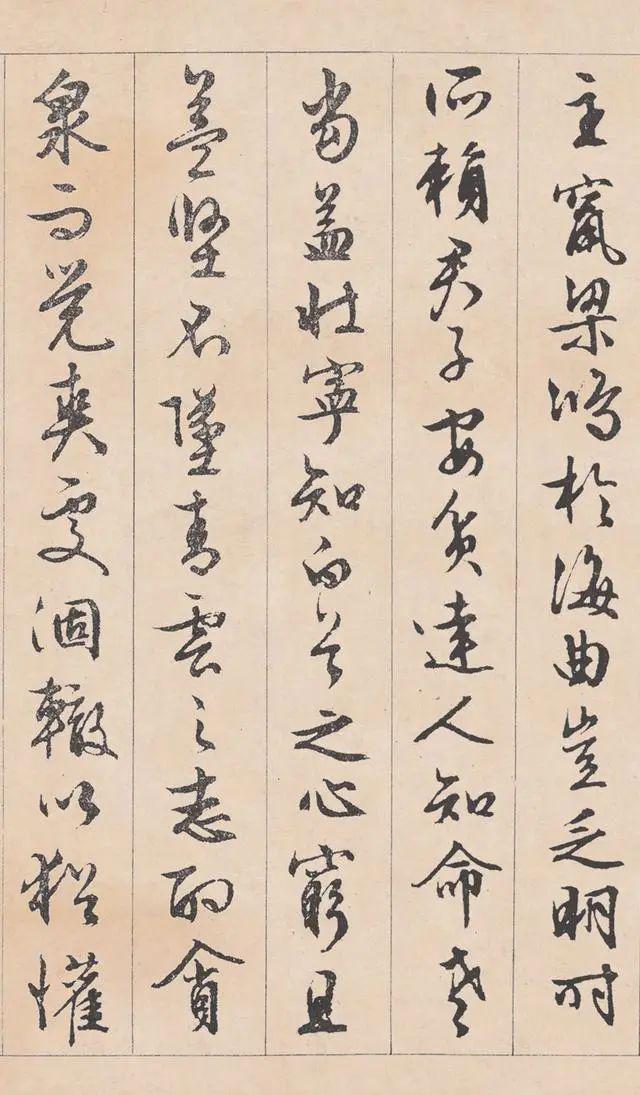 主竄梁鴻於海曲豈乏明時
所賴君子安貧達人知命老
當益壯寧知白首之心窮且
益堅不墜青雲之志酌貪
泉而覺爽處涸轍以猶懽